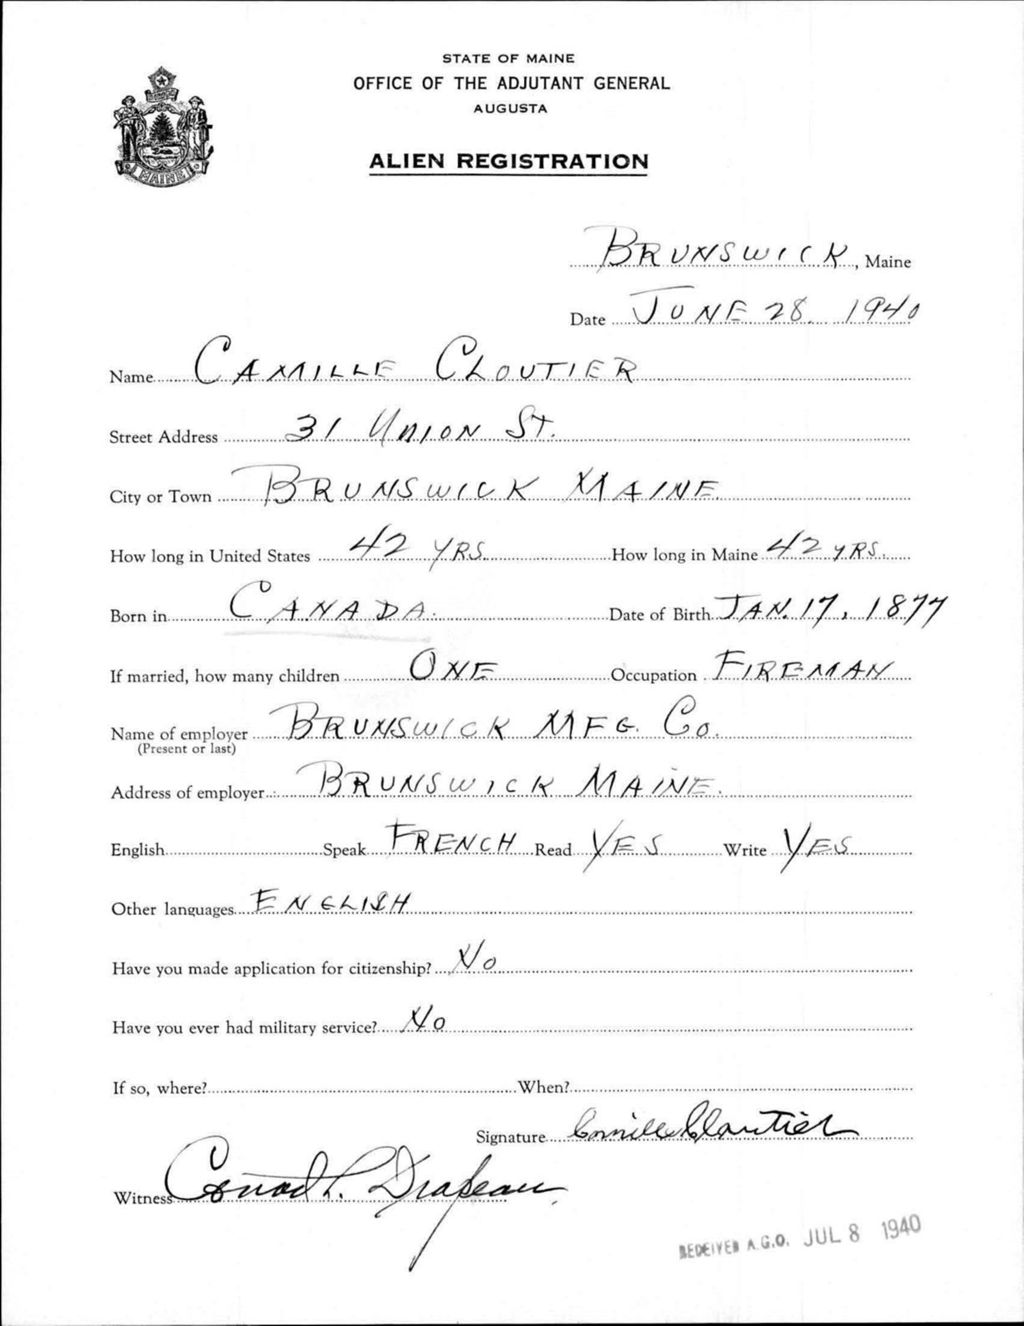 STATE OF MAINE
OFFICE OF THE ADJUTANT GENERAL
AUGUSTA
ALIEN REGISTRATION
MAINE
BRUNSWICK, Maine
Date JUNE 28 1940
Name CAMILLE CLOUTIER
Street Address 31 UNION ST.
City or Town BRUNSWICK MAINE
How long in United States 42 YRS How long in Maine 42 YRS.
Born in CANADA. Date of Birth JAN. 17, 1877
If married, how many children ONE Occupation FIREMAN
Name of employer BRUNSWICK MFG. Co.
(Present or last)
Address of employer BRUNSWICK MAINE.
English Speak FRENCH Read YES Write YES
Other languages ENGLISH
Have you made application for citizenship? No
Have you ever had military service? No
If so, where? When?
Signature Camille Cloutier
Witness Conrad L. Drapeau
RECEIVED A.G.O. JUL 8 1940